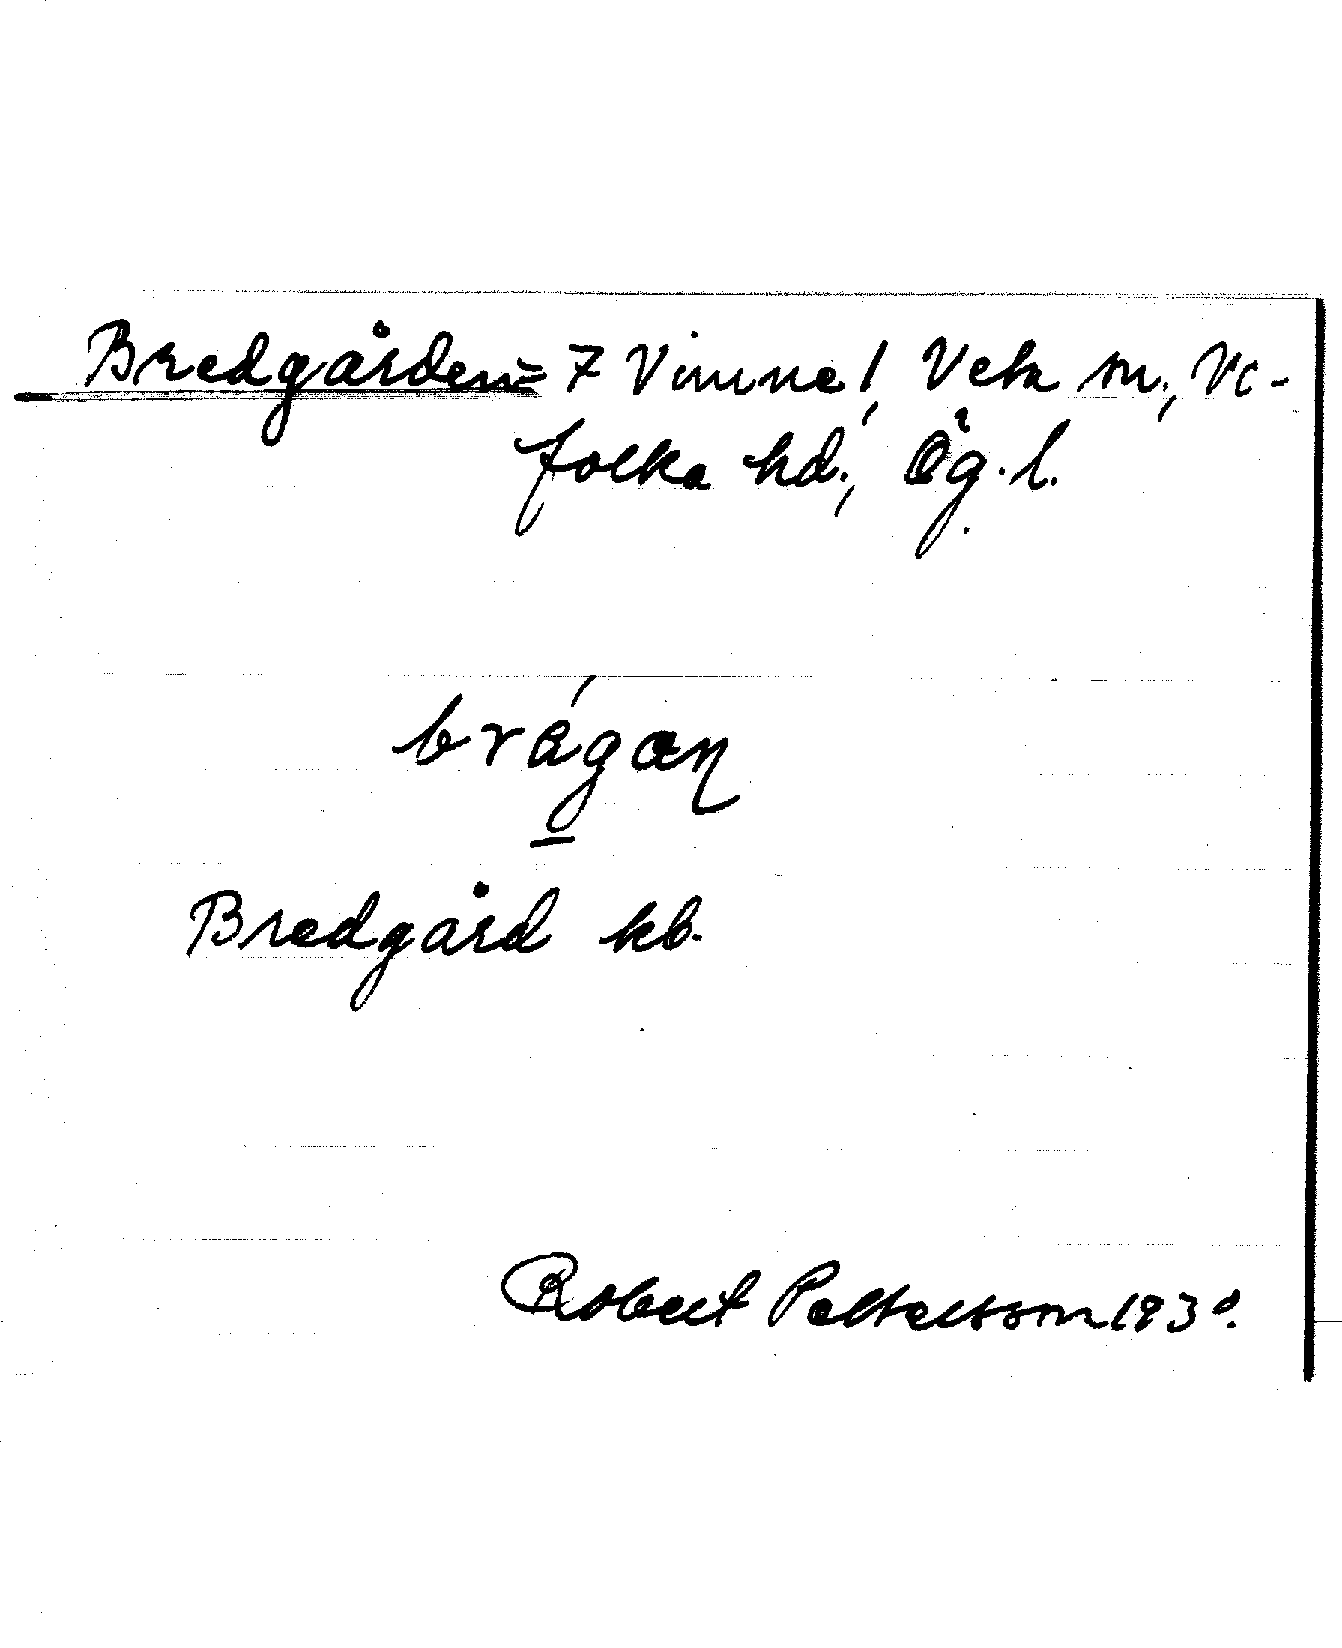 Bredgården = 7 Vimne!, Veta sn., Vi-
folka hd., Ög. l.
brágan
Bredgård kb.
Robert Pettersson 1930.